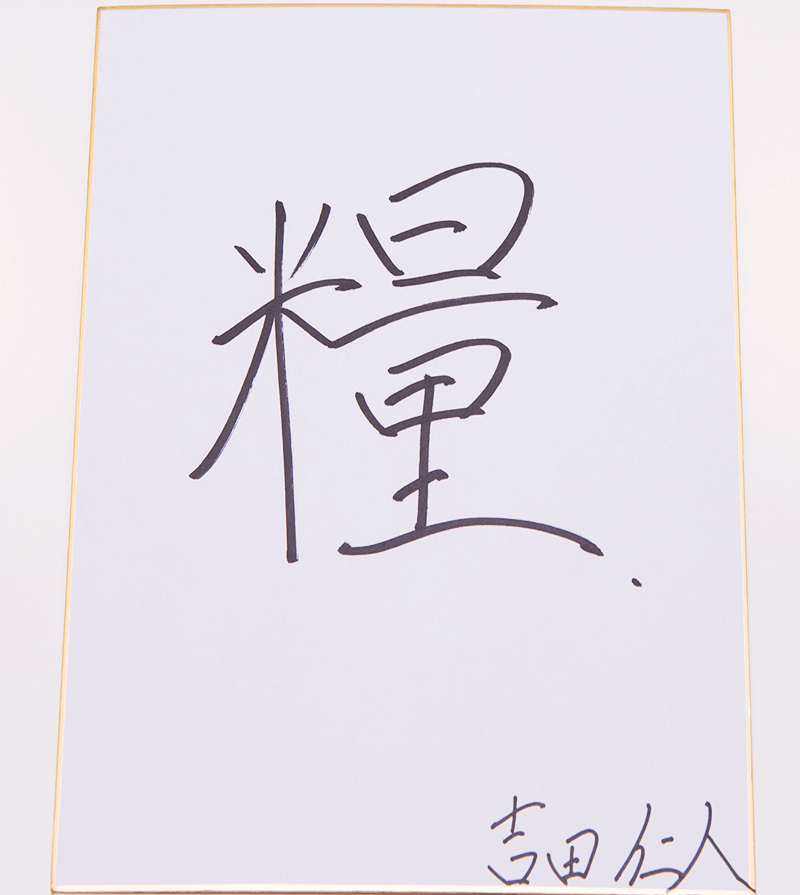 糧.
吉田仁人